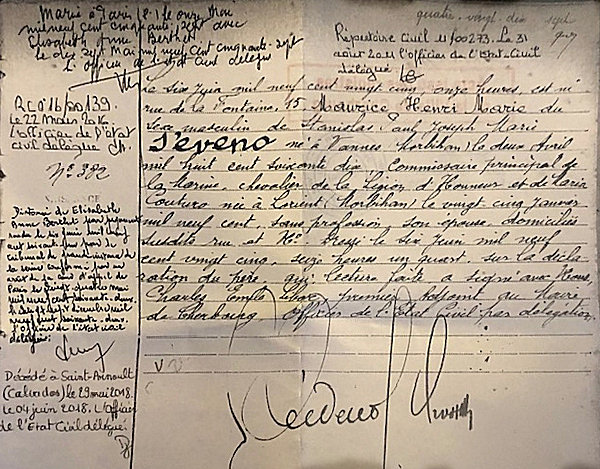 quatre-vingt-dix sept
Marié à Paris le onze Mai
mil neuf cent cinquante-sept avec
Elisabeth Anne Berthet
le dix sept Mai mil neuf cent cinquante-sept
L'officier de l'état civil délégué
RC n° 16/00139.
le 22 mars 2016
L'officier de l'état
civil délégué
N° 382
Divorcé de Elisabeth
Anne Berthet par jugement
tribunal de grande instance de
la Seine
Paris le
mil neuf cent soixante-deux.
neuf cent soixante-deux.
l'Officier de l'état civil
délégué:
Décédé à Saint-Arnoult
(Calvados) le 29 mai 2018.
le 04 juin 2018. L'officier
de l'Etat Civil délégué:
Répertoire Civil 11/00273. Le 31
août 2011 l'officier de l'Etat-Civil
délégué
Le six Juin mil neuf cent vingt cinq, onze heures, est né
rue de la Fontaine, 15 Maurice Henri Marie du
sexe masculin de Stanislas Paul Joseph Marie
Séveno né à Vannes (Morbihan) le deux Avril
mil huit cent soixante dix, Commissaire principal de
la Marine, chevalier de la Légion d'Honneur et de Maria
Couturo née à Lorient (Morbihan) le vingt cinq Janvier
mil neuf cent, sans profession, son épouse, domiciliés
susdits rue et N°. Dressé le six Juin mil neuf
cent vingt cinq, seize heures un quart, sur la décla
ration du père, qui, lecture faite a signé avec Nous,
Charles Emile premier adjoint au maire
de Cherbourg Officier de l'Etat Civil par délégation.
Séveno